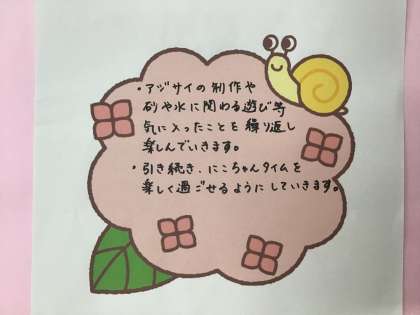 ・アジサイの制作や
砂や水に関わる遊び等
気に入ったことを繰り返し
楽しんでいきます。
・引き続き、にこちゃんタイムを
楽しく過ごせるようにしていきます。